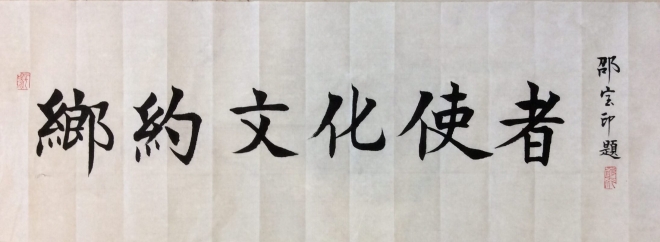 鄉約文化使者
邵宏印題